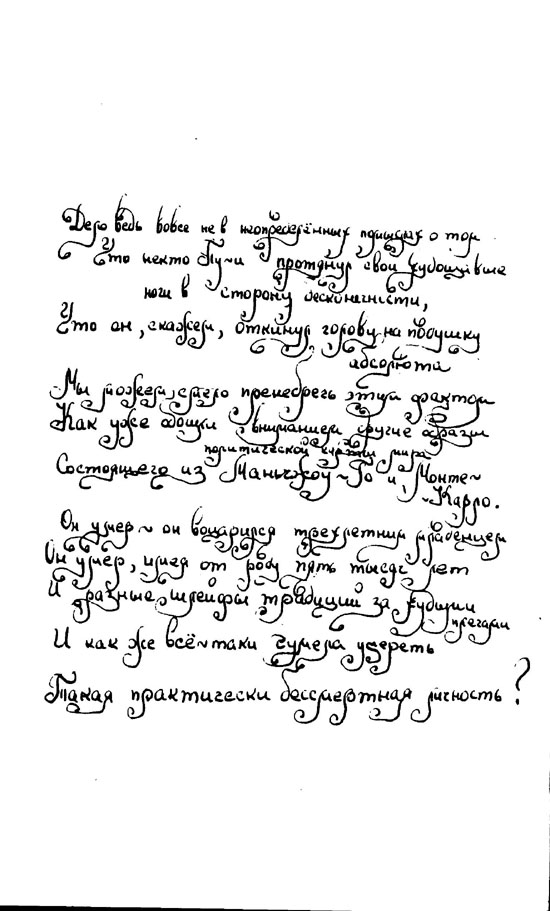 Дело ведь вовсе не в неопределённых позициях о том
Что некто Пу-и протянул свои худощавые
ноги в сторону бесконечности,
Что он, скажем, откинул голову на подушку
абсолюта
Мы можем смело пренебречь этим фактом
Как уже обошли вниманием другие фразы
политической карты мира
Состоящего из Маньчжоу~Го и Монте~
~Карло.
Он умер ~ он воцарился трехлетним младенцем
Он умер, имея от роду пять тысяч лет
И длинные шлейфы традиций за худыми
плечами
И как же всё~таки сумела умереть
Такая практически бессмертная личность?